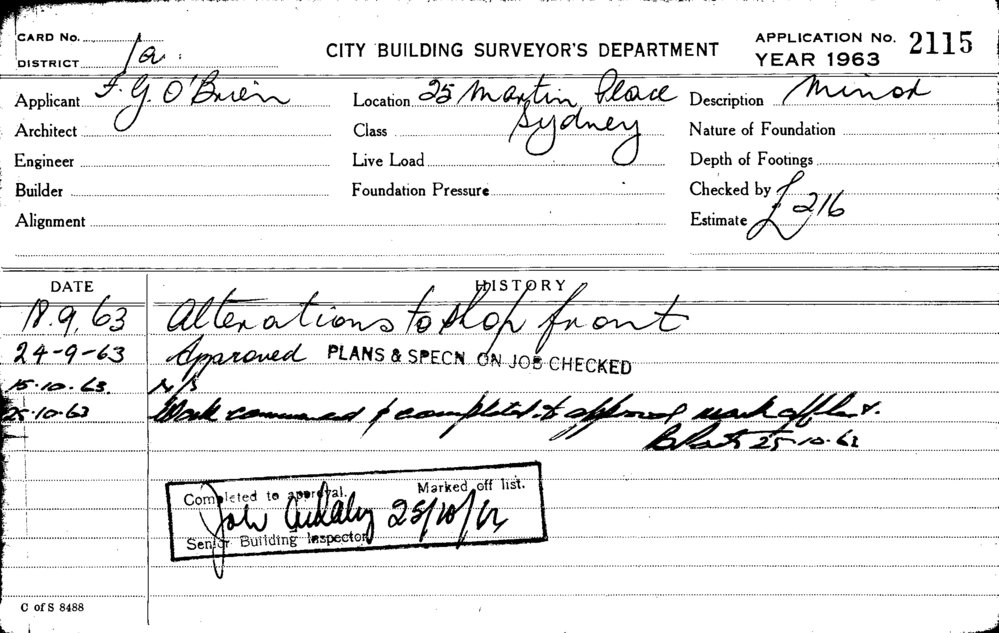 CARD No.
DISTRICT 1a.
CITY BUILDING SURVEYOR'S DEPARTMENT
APPLICATION No. 2115
YEAR 1963
Applicant F. G. O'Brien
Location 25 Martin Place
Sydney
Description Minor
Architect
Class
Nature of Foundation
Engineer
Live Load
Depth of Footings
Builder
Foundation Pressure
Checked by
Alignment
Estimate £216
DATE HISTORY
18.9.63 Alterations to shop front
24-9-63 Approved PLANS & SPECN. ON JOB CHECKED
15.10.63. N/S
25.10.63 Work commenced & completed to approval mark off
25-10-63
Completed to approval. Marked off list.
John 25/10/63
Senior Building Inspector
C of S 8488